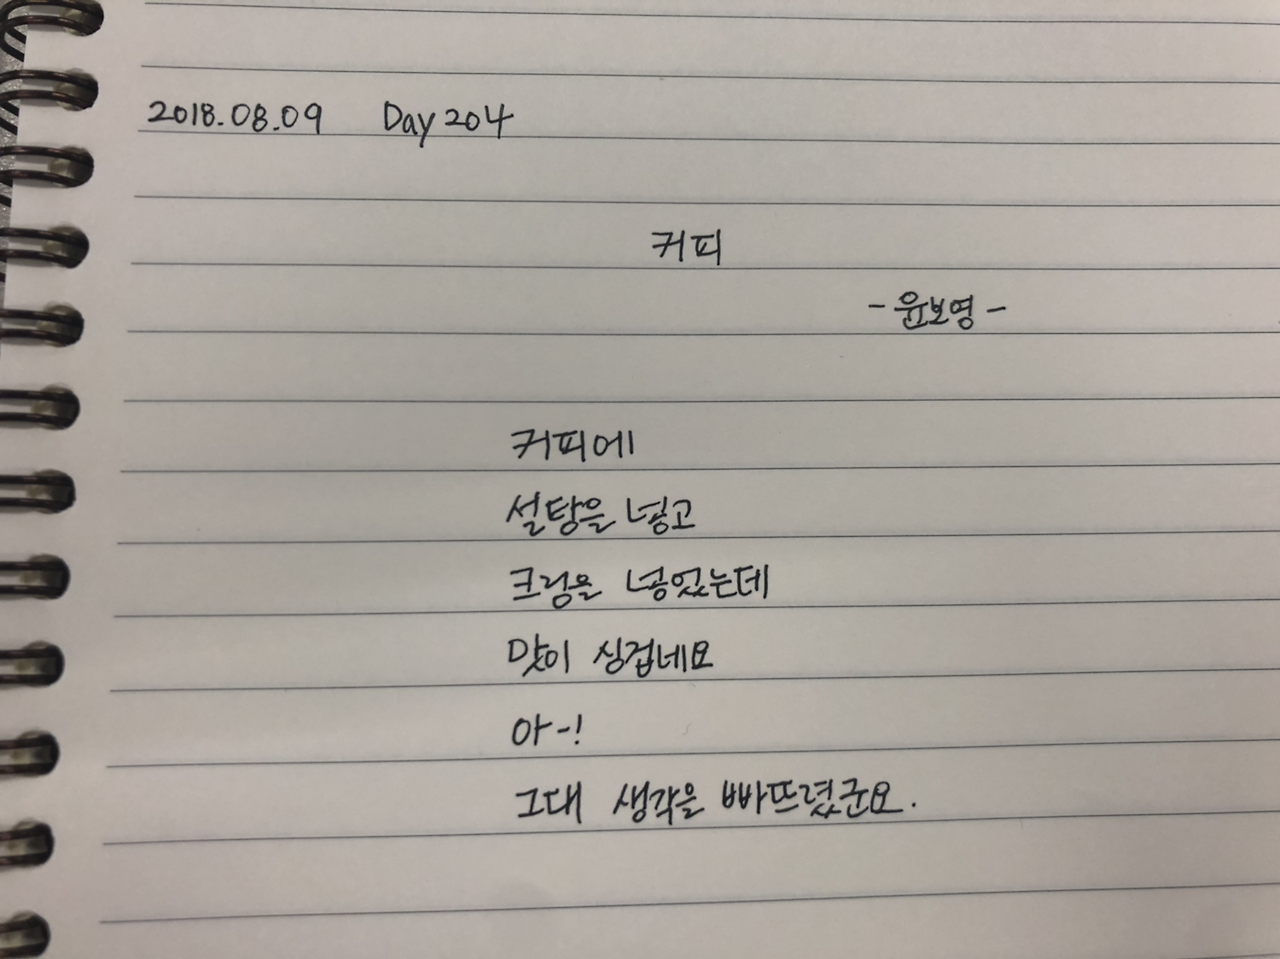 2018.08.09 Day 204
커피
- 윤보영 -
커피에
설탕을 넣고
크림을 넣었는데
맛이 싱겁네요
아-!
그대 생각을 빠뜨렸군요.